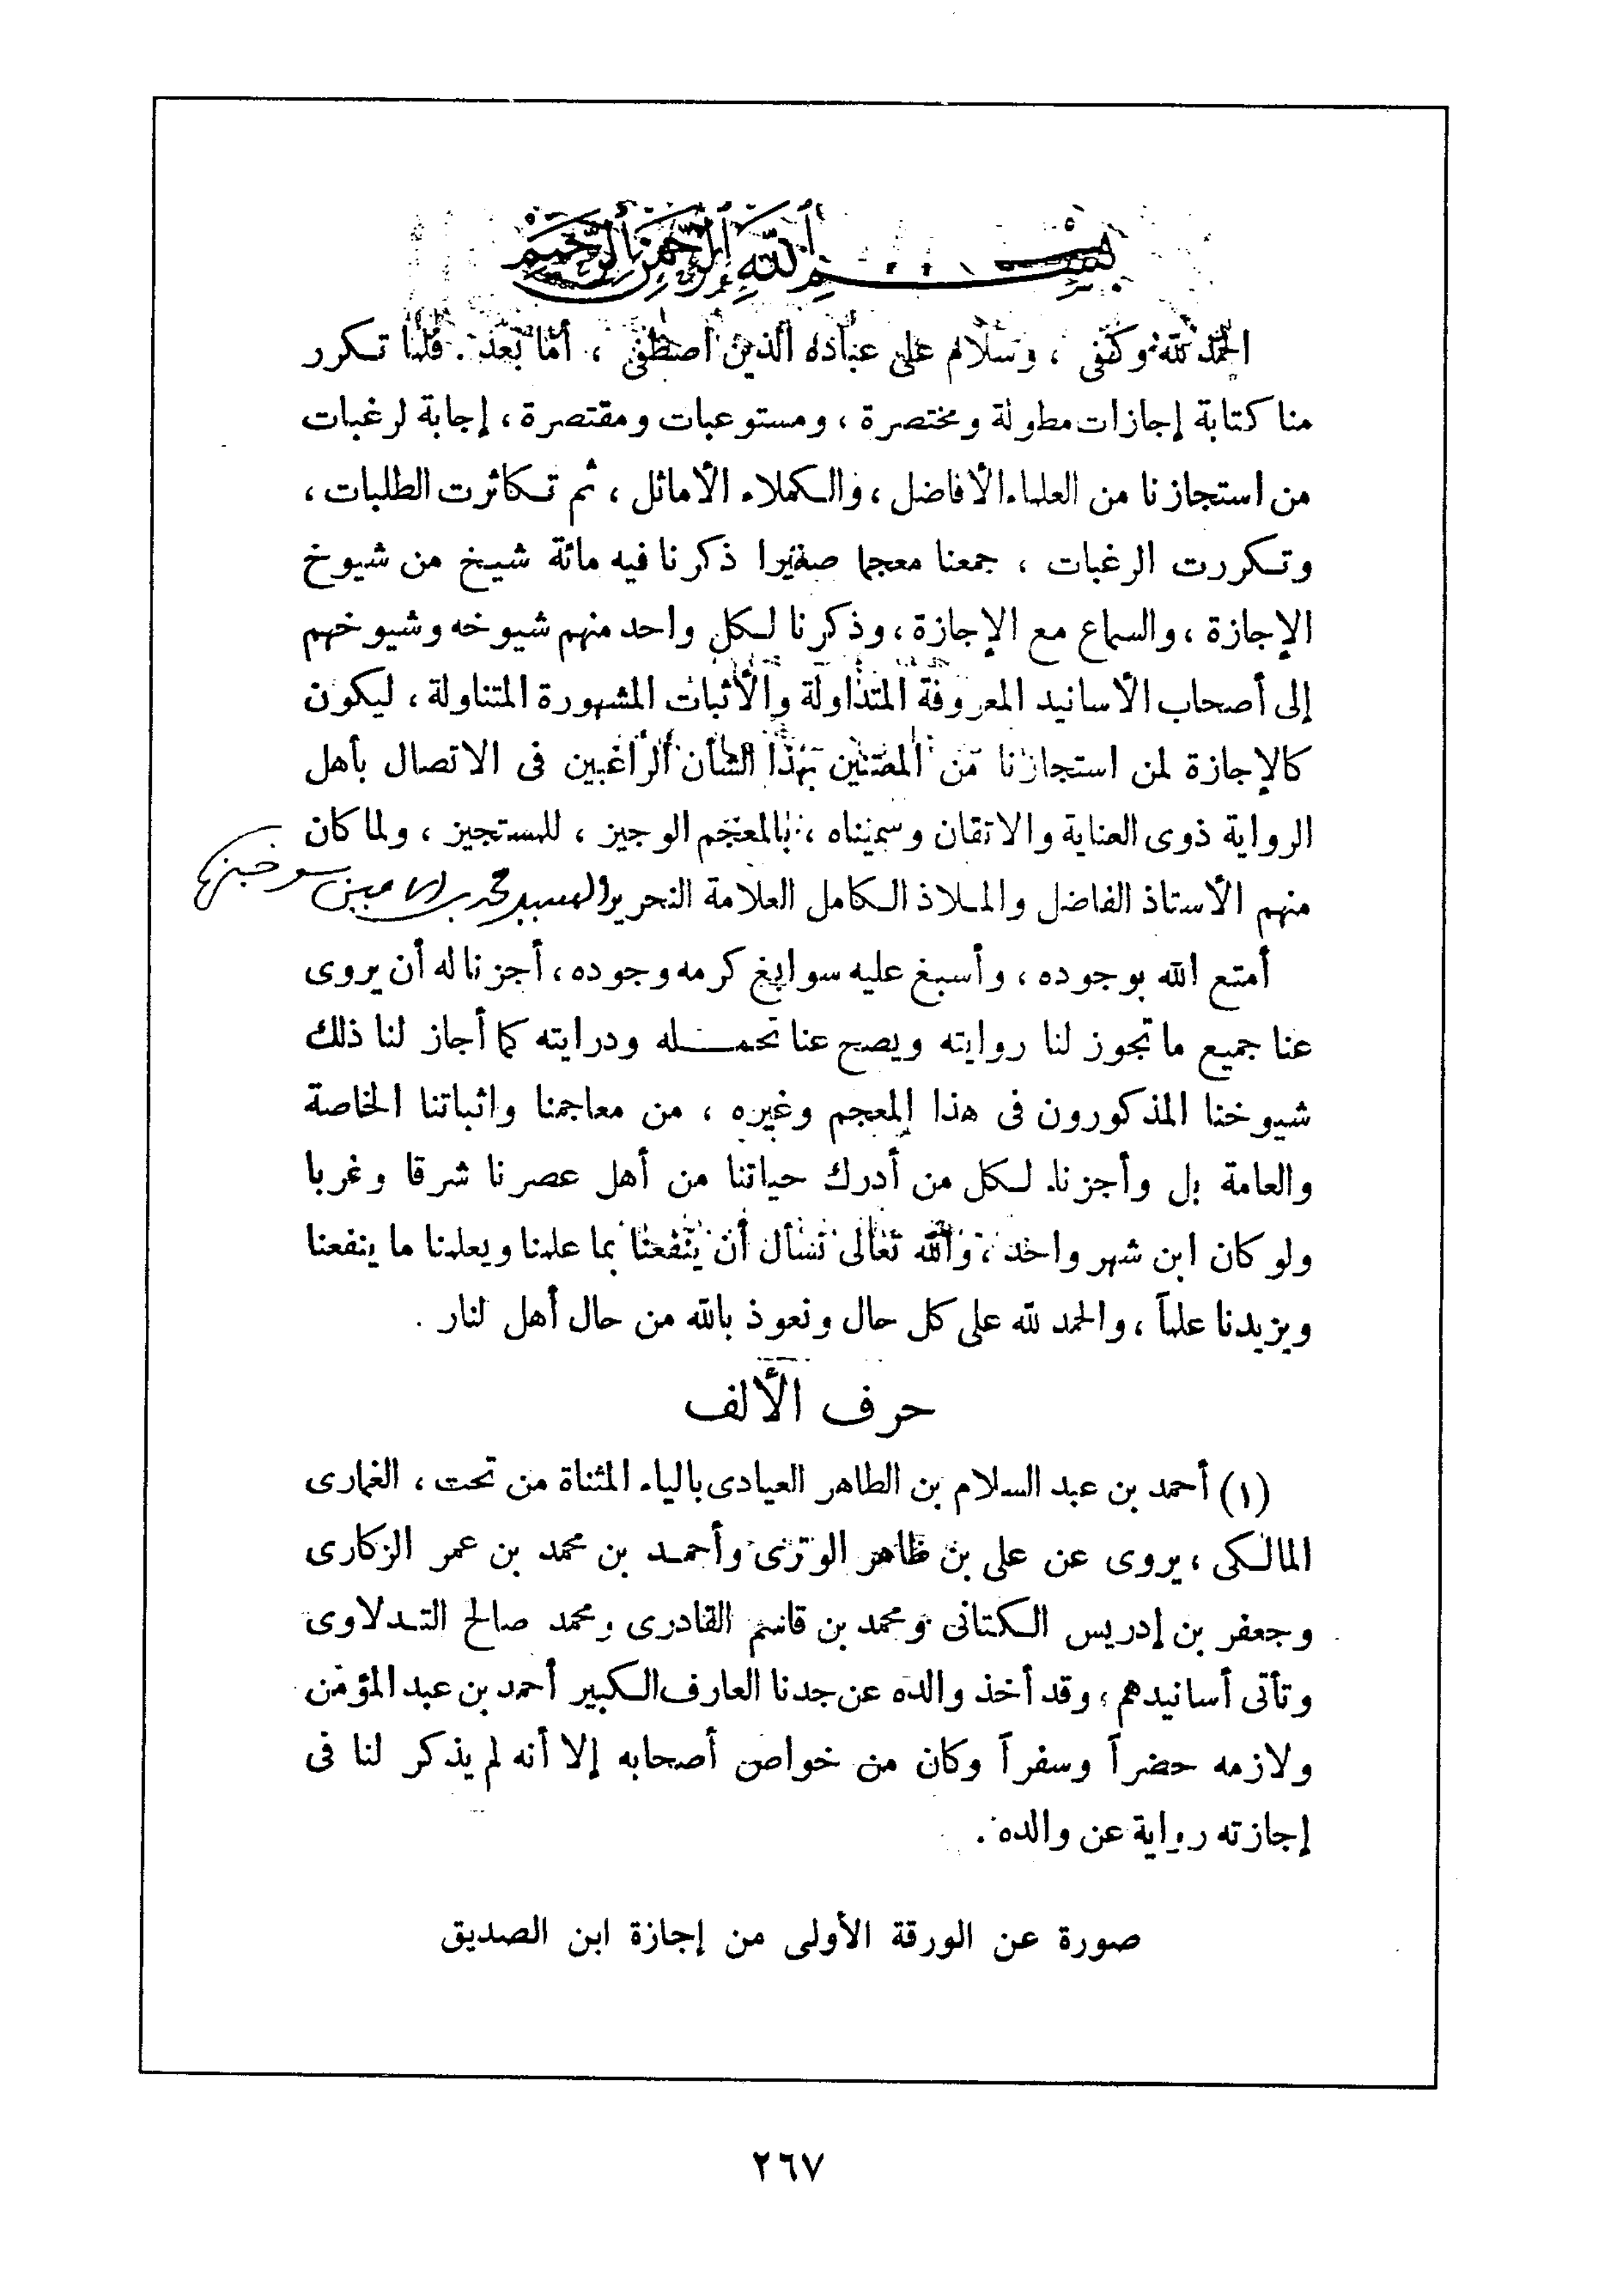 بسم الله الرحمن الرحيم
الحمد لله وكفى ، وسلام على عباده الذين اصطفى ، أما بعد . فلما تكرر
منا كتابة إجازات مطولة ومختصرة ، ومستوعبات ومقتصرة ، إجابة لرغبات
من استجازنا من العلماء الأفاضل ، والكملاء الأماثل ، ثم تكاثرت الطلبات ،
وتكررت الرغبات ، جمعنا معجما صغيرا ذكرنا فيه مائة شيخ من شيوخ
الإجازة ، والسماع مع الإجازة ، وذكرنا لكل واحد منهم شيوخه وشيوخهم
إلى أصحاب الأسانيد المعروفة المتداولة والأثبات المشهورة المتناولة ، ليكون
كالإجازة لمن استجازنا من المعتنين بهذا الشأن الراغبين فى الاتصال بأهل
الرواية ذوى العناية والاتقان وسميناه ، بالمعجم الوجيز ، للمستجيز ، ولما كان
منهم الأستاذ الفاضل والملاذ الكامل العلامة النحرير السيد محمد الامين بوخبزة
أمتع الله بوجوده ، وأسبغ عليه سوابغ كرمه وجوده ، أجزنا له أن يروى
عنا جميع ما تجوز لنا روايته ويصح عنا تحمله ودرايته كما أجاز لنا ذلك
شيوخنا المذكورون فى هذا المعجم وغيره ، من معاجمنا واثباتنا الخاصة
والعامة بل وأجزنا لكل من أدرك حياتنا من أهل عصرنا شرقا وغربا
ولو كان ابن شهر واحد ، والله تعالى نسأل أن ينفعنا بما علمنا ويعلمنا ما ينفعنا
ويزيدنا علماً ، والحمد لله على كل حال ونعوذ بالله من حال أهل لنار .
حرف الألف
(١) أحمد بن عبد السلام بن الطاهر العيادى بالياء المثناة من تحت ، الغمارى
المالكى ، يروى عن على بن ظاهر الوترى وأحمد بن محمد بن عمر الزكارى
وجعفر بن إدريس الكتانى ومحمد بن قاسم القادرى ومحمد صالح التدلاوى
وتأتى أسانيدهم ، وقد أخذ والده عن جدنا العارف الكبير أحمد بن عبد المؤمن
ولازمه حضراً وسفراً وكان من خواص أصحابه إلا أنه لم يذكر لنا فى
إجازته رواية عن والده .
صورة عن الورقة الأولى من إجازة ابن الصديق
٢٦٧